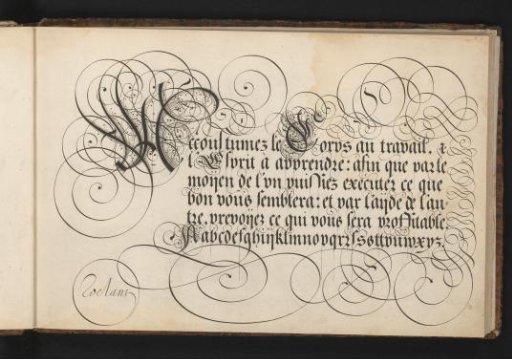 Accoustumez le Corps au travail, &
l'Esprit à apprendre: afin que par le
moyen de l'vn puissiez executer ce que
bon vous semblera: et par l'ayde de l'au
tre, prevoyez ce qui vous sera proffitable.
A abcdefghijklmnopqrzſssttvuwxyz.